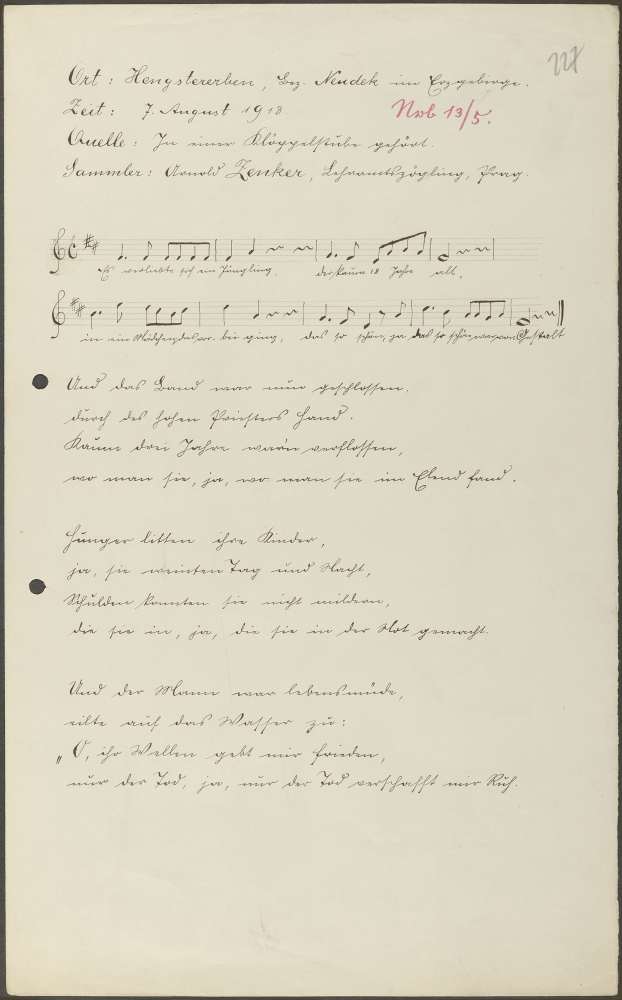 227
Ort: Hengstererben, Bez. Neudek im Erzgebirge.
Zeit: 7. August 1918
Nrb 13/5.
Quelle: In einer Klöppelstube gehört.
Sammler: Arnold Zenker, Lehramtszögling, Prag.
Es verliebte sich ein Jüngling, der kaum 18 Jahre alt,
in ein Mädchen, das vorbei ging, das so schön, ja das so schön war von Gestalt
Und das Band war nun geschlossen,
durch des hohen Priesters Hand.
Kaum drei Jahre warn verflossen,
wo man sie, ja, wo man sie im Elend fand.
Hunger litten ihre Kinder,
ja, sie weinten Tag und Nacht,
Schulden konnten sie nicht mildern,
die sie in, ja, die sie in der Not gemacht.
Und der Mann war lebensmüde,
eilte auf das Wasser zu:
„O, ihr Wellen gebt mir Frieden,
nur der Tod, ja, nur der Tod verschafft mir Ruh.